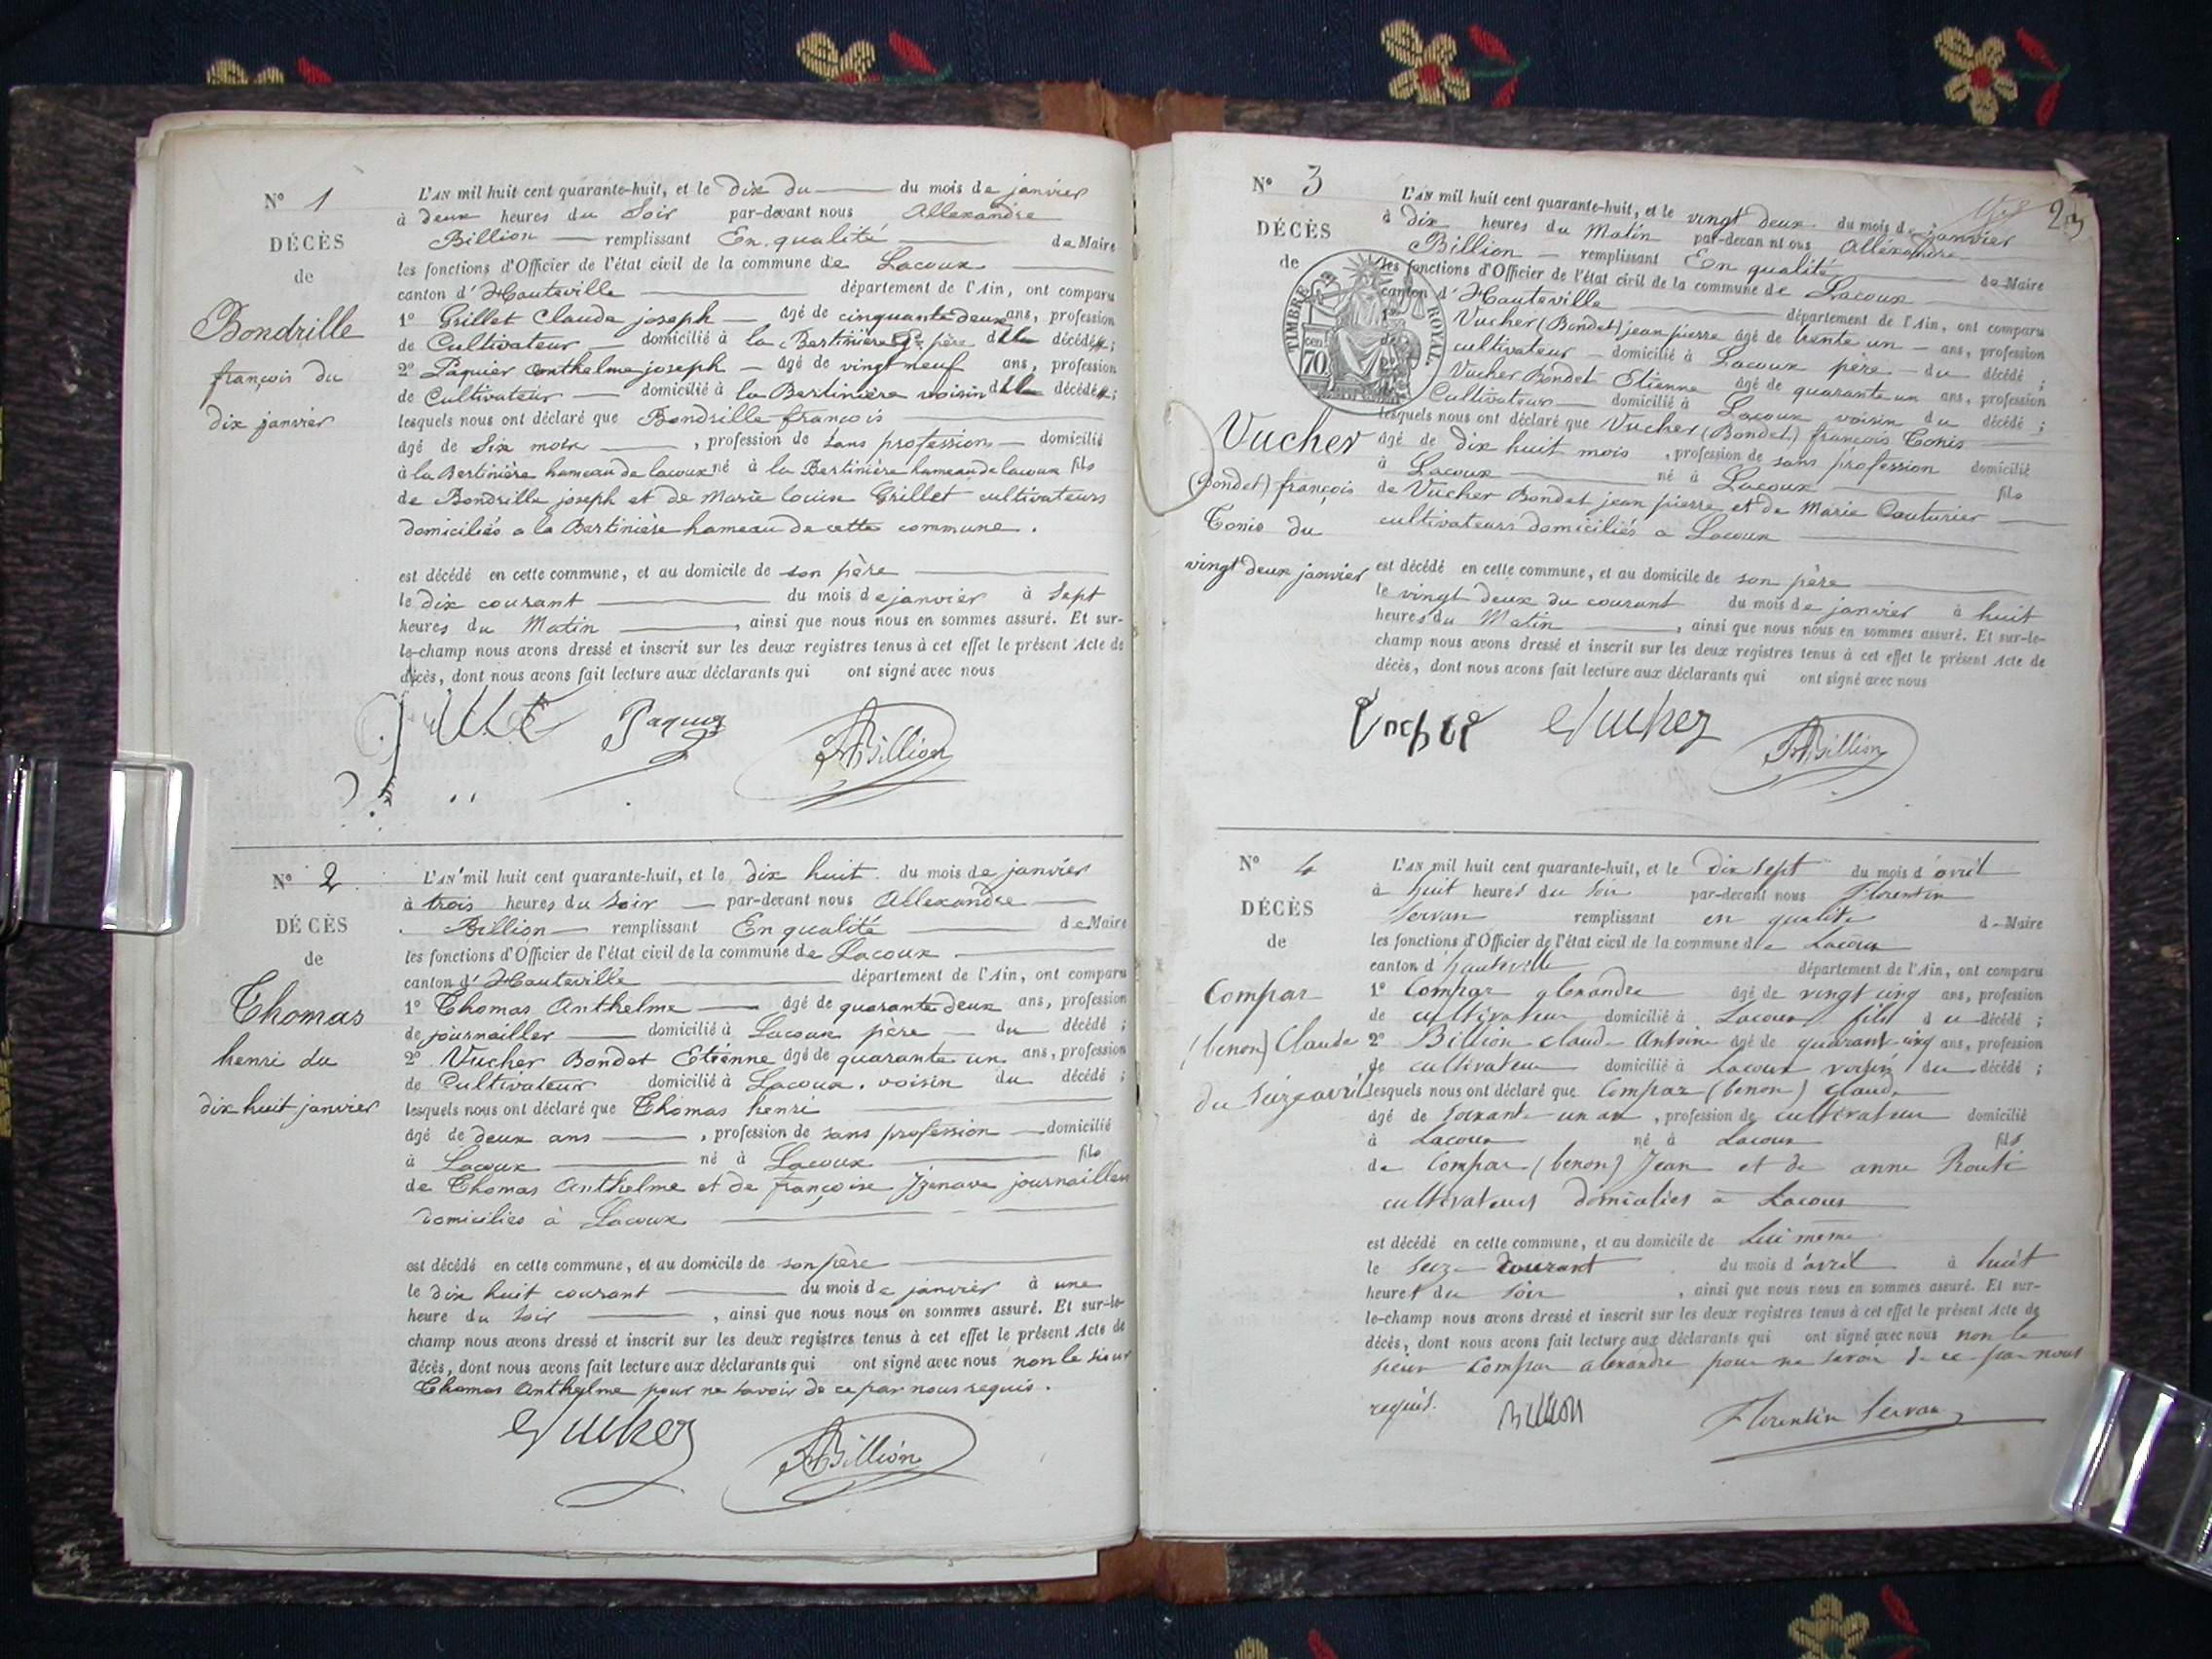 N° 1
DÉCÈS
de
Bondrille
françois du
dix janvier
L'AN mil huit cent quarante-huit, et le dix du du mois de janvier
à deux heures du Soir par-devant nous Allexandre
Billion remplissant En qualité de Maire
les fonctions d'Officier de l'état civil de la commune de Lacoux
canton d'Hauteville département de l'Ain, ont comparu
1° Grillet Claude joseph âgé de cinquante deux ans, profession
de Cultivateur domicilié à la Bertinière père décédé ;
2° Paquier anthelme joseph âgé de vingt neuf ans, profession
de Cultivateur domicilié à la Bertinière voisin décédé ;
lesquels nous ont déclaré que Bondrille françois
âgé de Six mois , profession de sans profession domicilié
à la Bertinière hameau de lacoux né à la Bertinière hameau de lacoux fils
de Bondrille joseph et de Marie louise Grillet cultivateurs
domiciliés a la Bertinière hameau de cette commune .
est décédé en cette commune, et au domicile de son père
le dix courant du mois de janvier à Sept
heures du Matin , ainsi que nous nous en sommes assuré. Et sur-
le-champ nous avons dressé et inscrit sur les deux registres tenus à cet effet le présent Acte de
décès, dont nous avons fait lecture aux déclarants qui ont signé avec nous
Paquier ABillion
N° 2
DÉCÈS
de
Thomas
henri du
dix huit janvier
L'AN mil huit cent quarante-huit, et le dix huit du mois de janvier
à trois heures du Soir par-devant nous Allexandre
Billion remplissant En qualité de Maire
les fonctions d'Officier de l'état civil de la commune de Lacoux
canton d'Hauteville département de l'Ain, ont comparu
1° Thomas Anthelme âgé de quarante deux ans, profession
de journailler domicilié à Lacoux père du décédé ;
2° Vucher Bondet Etiénne âgé de quarante un ans, profession
de Cultivateur domicilié à Lacoux . voisin du décédé ;
lesquels nous ont déclaré que Thomas henri
âgé de deux ans , profession de sans profession domicilié
à Lacoux né à Lacoux fils
de Thomas Anthelme et de françoise journaillers
domicilies à Lacoux
est décédé en cette commune, et au domicile de son père
le dix huit courant du mois de janvier à une
heure du Soir , ainsi que nous nous en sommes assuré. Et sur-le-
champ nous avons dressé et inscrit sur les deux registres tenus à cet effet le présent Acte de
décès, dont nous avons fait lecture aux déclarants qui ont signé avec nous non le sieur
Thomas Anthelme pour ne savoir de ce par nous requis .
Vucher ABillion
23
N° 3
DÉCÈS
de
TIMBRE ROYAL
cen 70
Vucher
(Bondet) françois
Tonis du
vingt deux janvier
L'AN mil huit cent quarante-huit, et le vingt deux du mois de janvier
à dix heures du Matin par-devan nt ous Alléxandre
Billion remplissant En qualité de Maire
les fonctions d'Officier de l'état civil de la commune de Lacoux
canton d'Hauteville département de l'Ain, ont comparu
1° Vucher (Bondet) jean pierre âgé de trente un ans, profession
de cultivateur domicilié à Lacoux père du décédé ;
2° Vucher Bondet Etienne âgé de quarante un ans, profession
Cultivateur domicilié à Lacoux voisin du décédé ;
lesquels nous ont déclaré que Vucher (Bondet) françois Tonis
âgé de dix huit mois , profession de sans profession domicilié
à Lacoux né à Lacoux fils
de Vucher Bondet jean pierre et de Marie Couturier
cultivateurs domiciliés a Lacoux
est décédé en cette commune, et au domicile de son père
le vingt deux du courant du mois de janvier à huit
heures du Matin , ainsi que nous nous en sommes assuré. Et sur-le-
champ nous avons dressé et inscrit sur les deux registres tenus à cet effet le présent Acte de
décès, dont nous avons fait lecture aux déclarants qui ont signé avec nous
Vucher Vucher ABillion
N° 4
DÉCÈS
de
Compar
(benon) Claude
du Seize avril
L'AN mil huit cent quarante-huit, et le dix sept du mois d'avril
à huit heures du Soir par-devant nous Florentin
Servan remplissant en qualité de Maire
les fonctions d'Officier de l'état civil de la commune de Lacoux
canton d'hauteville département de l'Ain, ont comparu
1° Compar alexandre âgé de vingt cinq ans, profession
de cultivateur domicilié à Lacoux fils du décédé ;
2° Billion claude Antoine âgé de quarante-cinq ans, profession
de cultivateur domicilié à Lacoux voisin du décédé ;
lesquels nous ont déclaré que Compar (benon) Claude
âgé de soixante un an , profession de cultivateur domicilié
à Lacoux né à Lacoux fils
de Compar (benon) Jean et de anne
cultivateurs domicilies à Lacoux
est décédé en cette commune, et au domicile de lui même
le Seize courant du mois d'avril à huit
heures du Soir , ainsi que nous nous en sommes assuré. Et sur-
le-champ nous avons dressé et inscrit sur les deux registres tenus à cet effet le présent Acte de
décès, dont nous avons fait lecture aux déclarants qui ont signé avec nous non le
sieur Compar alexandre pour ne savoir de ce par nous
requis. Billion Florentin Servan